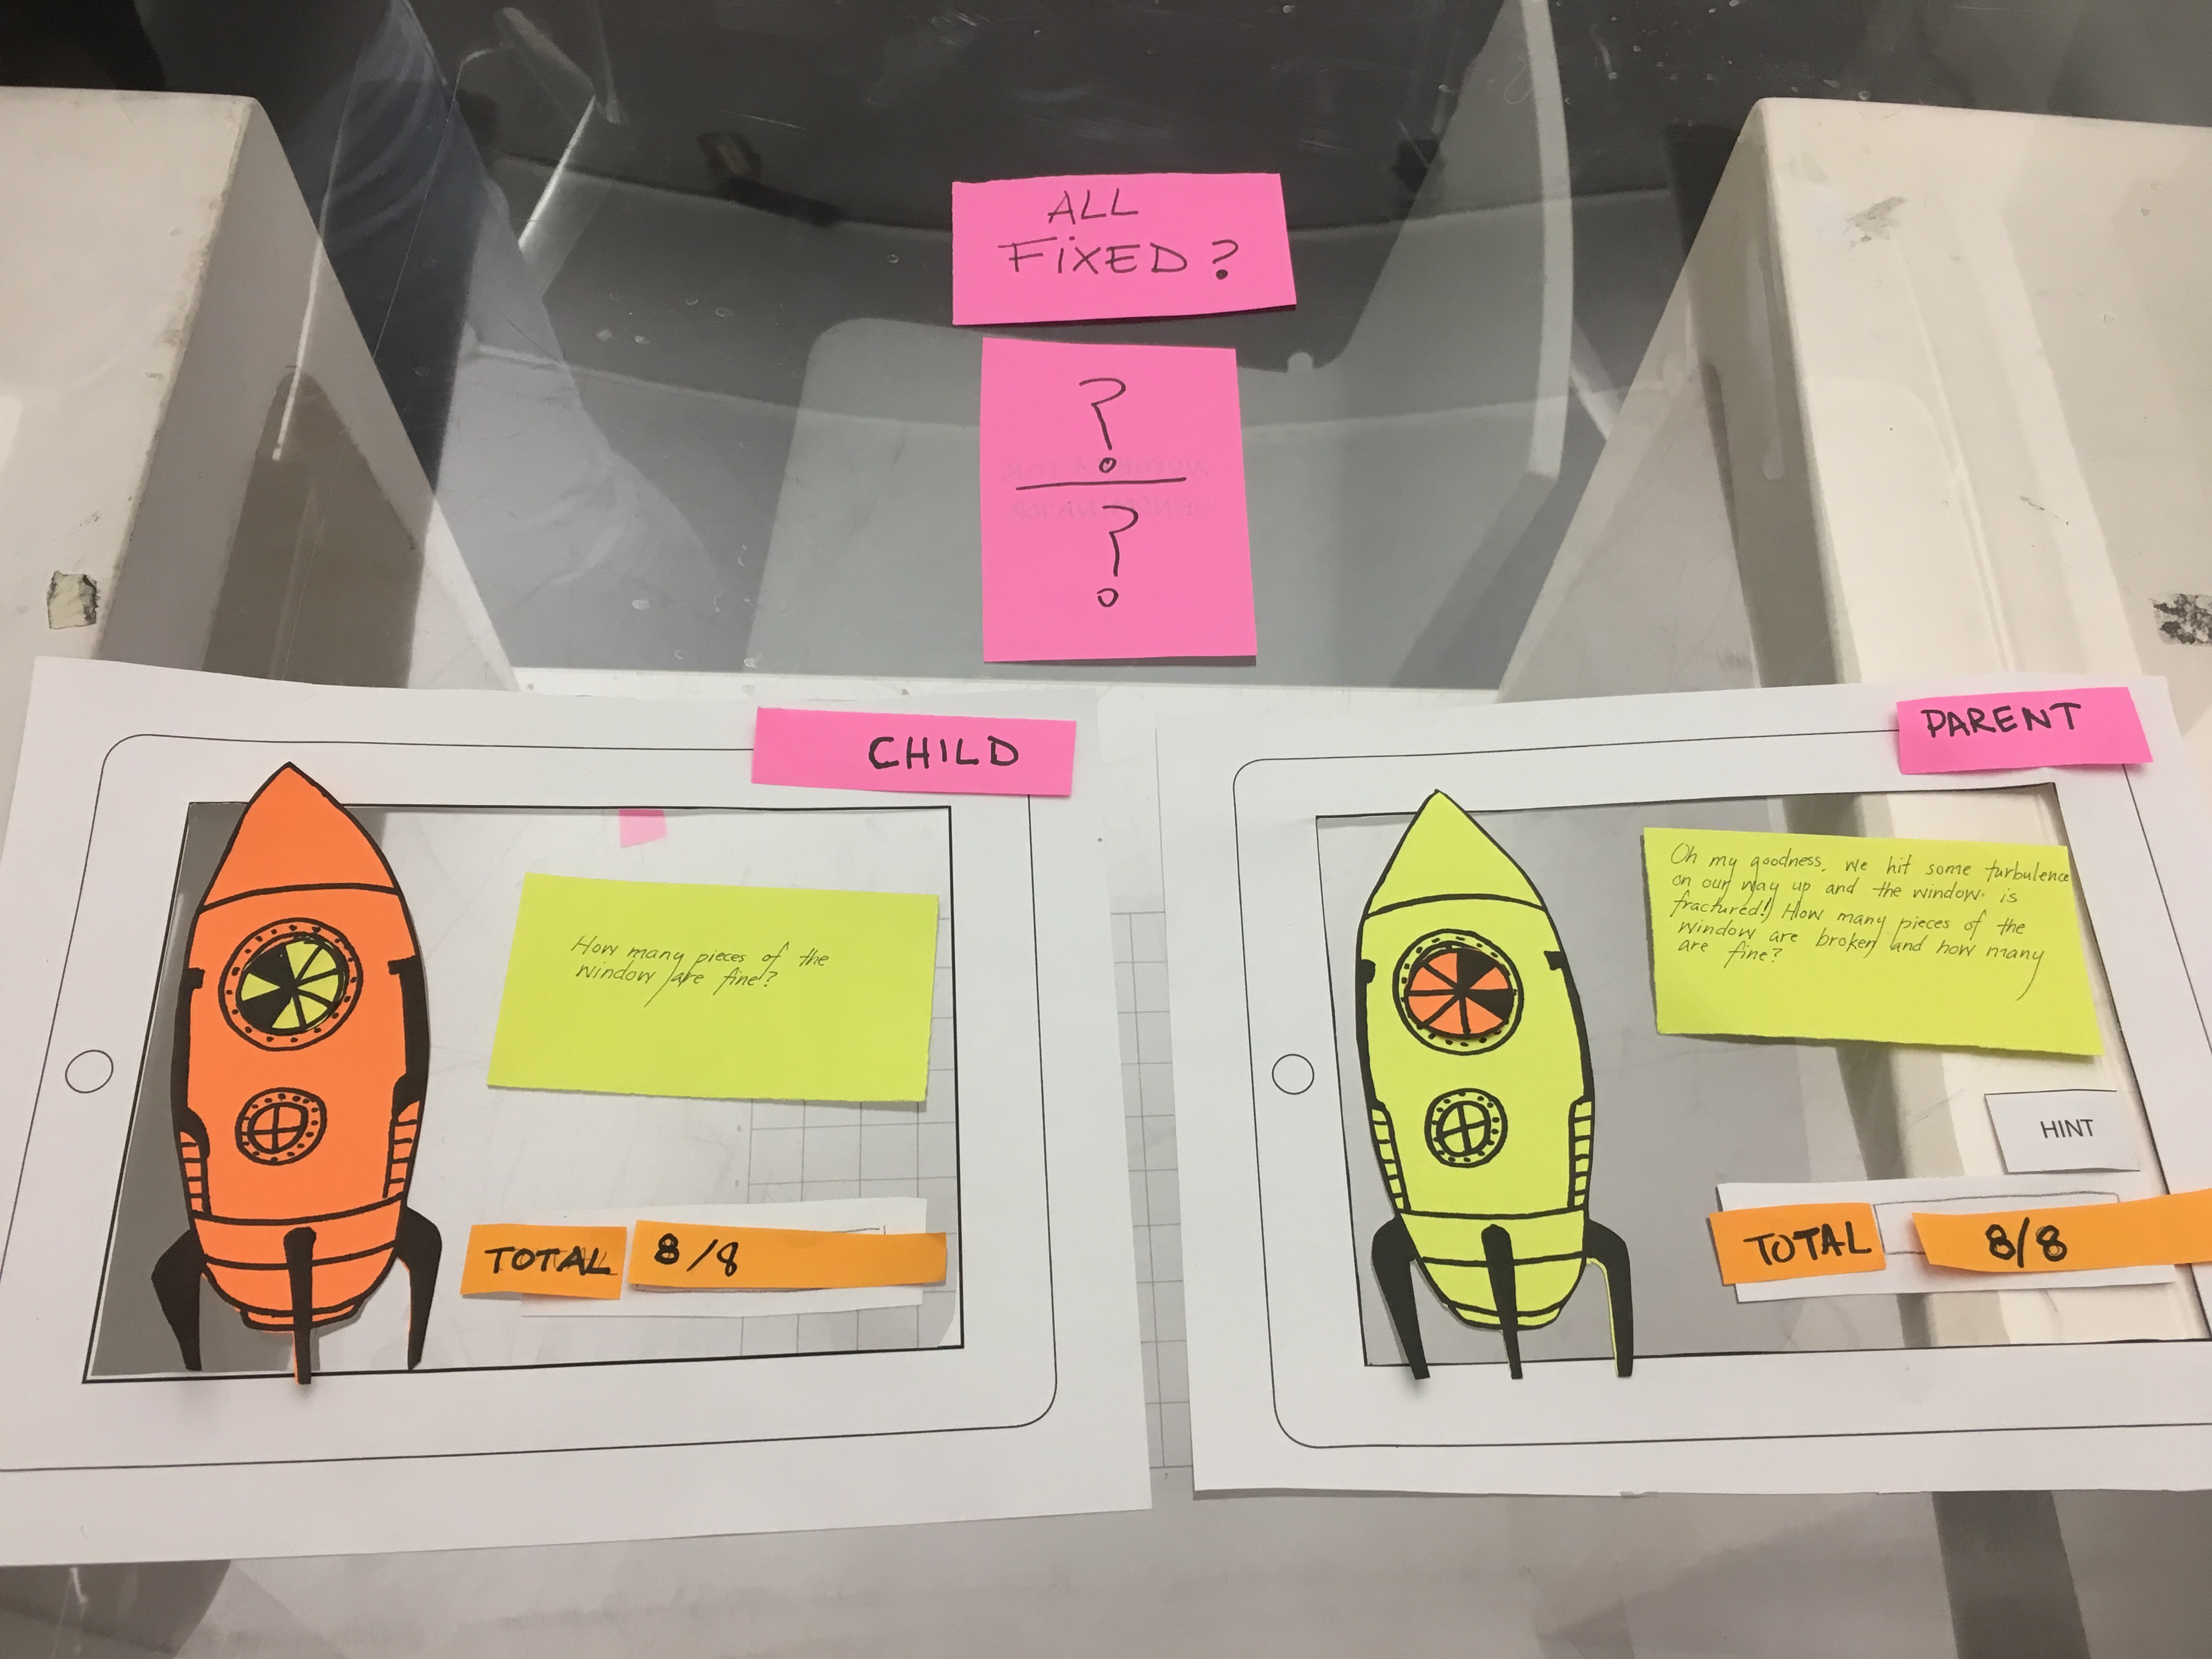 ALL
FiXED?
?
?
NUMERATOR
DENOMINATOR
CHILD
How many pieces of the
window are fine?
TOTAL
8/8
PARENT
Oh my goodness, we hit some turbulence
on our way up and the window is
fractured! How many pieces of the
window are broken and how many
are fine?
HINT
TOTAL
8/8